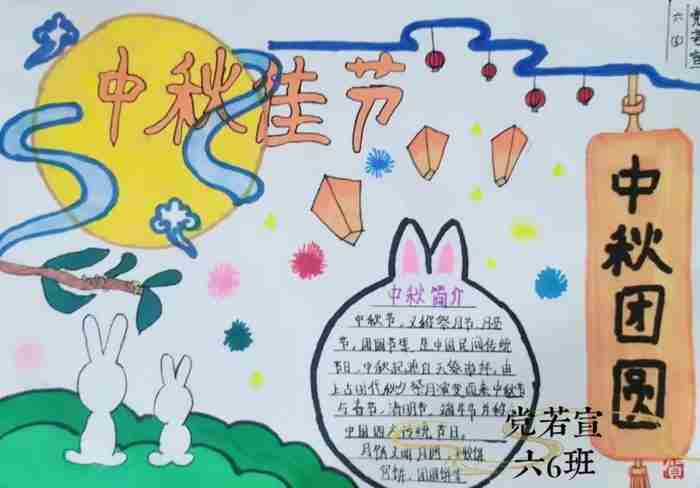 中秋佳节
党若宣
中秋团圆
中秋简介
中秋节，又称祭月节、月
节、团圆节等，是中国民间传统
节日。中秋起源自天象崇拜，由
上古时代秋夕祭月演变而来。中秋节
与春节、清明节、端午节并称
中国四大传统节日。
党若宣
六6班